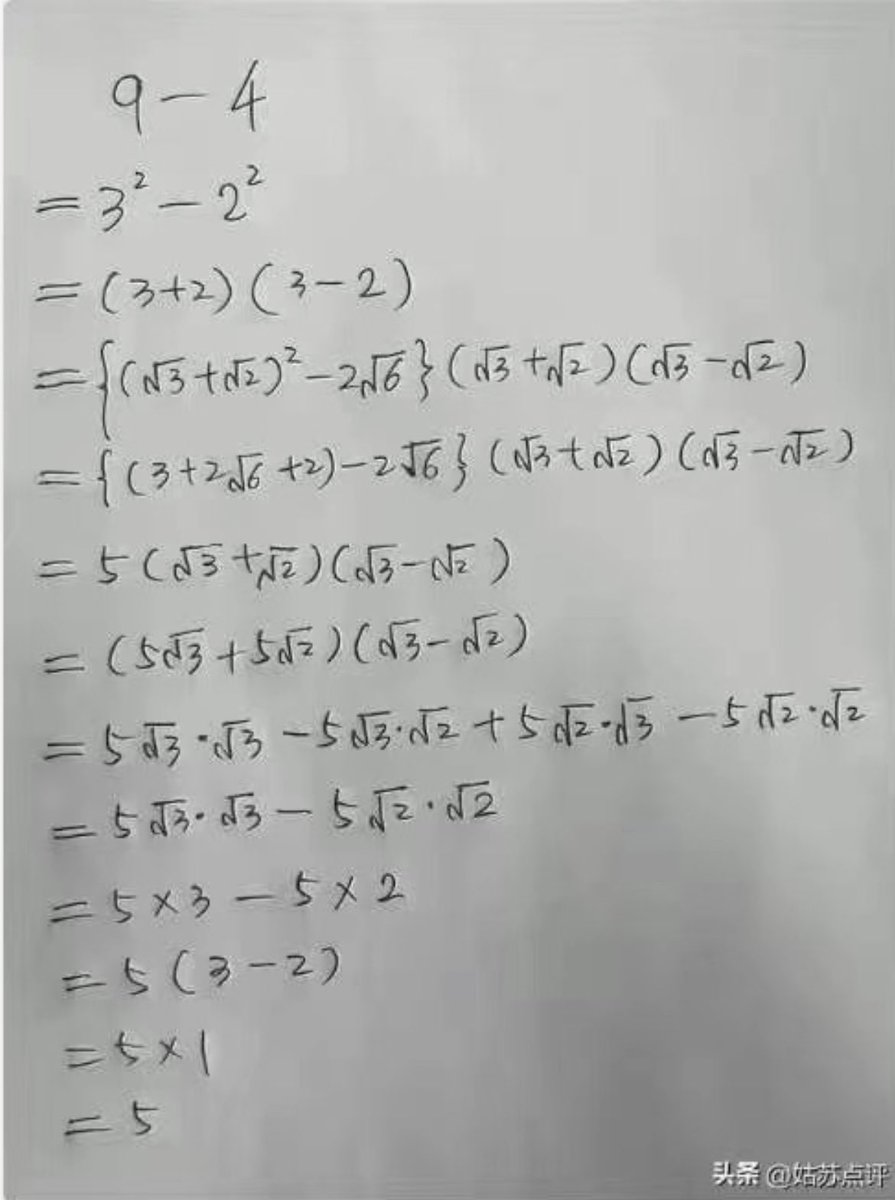 9-4
=3²-2²
=(3+2)(3-2)
={(√3+√2)²-2√6}(√3+√2)(√3-√2)
={(3+2√6+2)-2√6}(√3+√2)(√3-√2)
=5(√3+√2)(√3-√2)
=(5√3+5√2)(√3-√2)
=5√3·√3-5√3·√2+5√2·√3-5√2·√2
=5√3·√3-5√2·√2
=5×3-5×2
=5(3-2)
=5×1
=5
头条 @姑苏点评